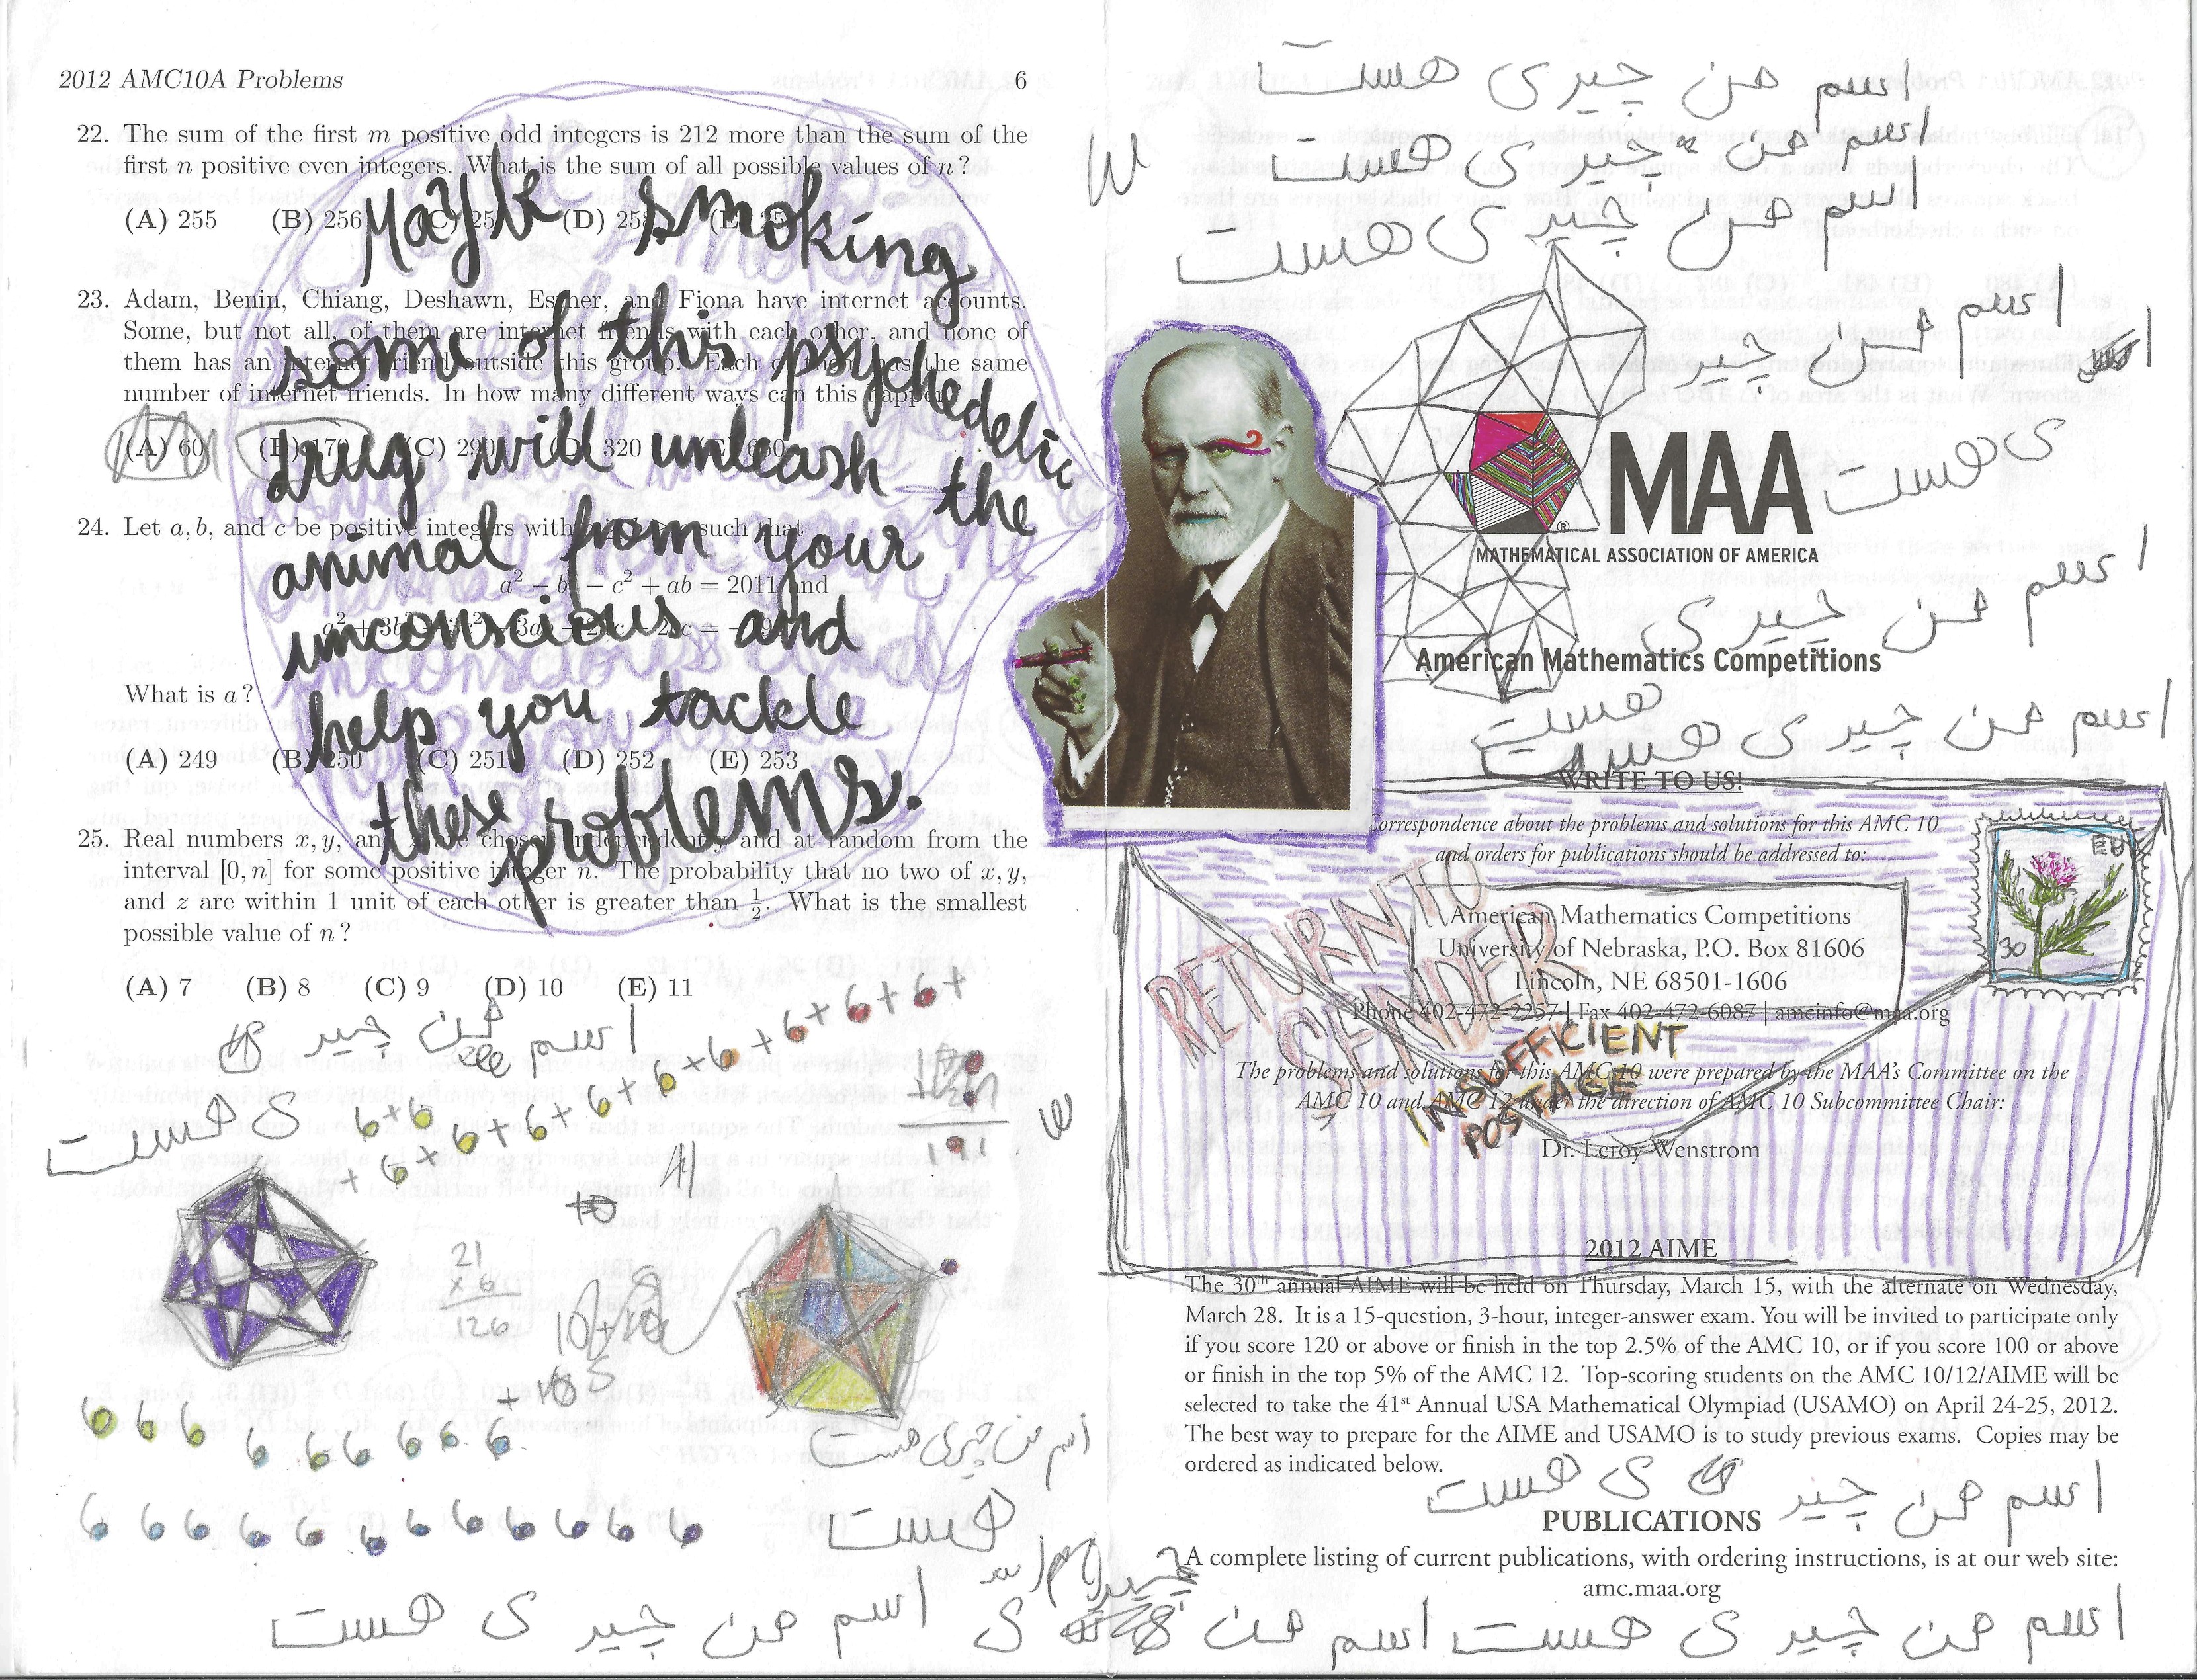 2012 AMC10A Problems 6
22. The sum of the first m positive odd integers is 212 more than the sum of the
first n positive even integers. What is the sum of all possible values of n?
(A) 255 (B) 256 (C) 25 (D) 258 (E) 25
23. Adam, Benin, Chiang, Deshawn, Esther, and Fiona have internet accounts.
Some, but not all, of them are internet friends with each other, and none of
them has an internet friend outside this group. Each of them has the same
number of internet friends. In how many different ways can this happen
(A) 60 (B) 170 (C) 290 (D) 320 (E) 660
24. Let a, b, and c be positive integers with such that
a² − b² − c² + ab = 2011 and
What is a?
(A) 249 (B) 250 (C) 251 (D) 252 (E) 253
25. Real numbers x, y, and are chosen independently and at random from the
interval [0, n] for some positive integer n. The probability that no two of x, y,
and z are within 1 unit of each other is greater than ½. What is the smallest
possible value of n?
(A) 7 (B) 8 (C) 9 (D) 10 (E) 11
Maybe smoking
some of this psychedelic
drug will unleash the
animal from your
unconscious and
help you tackle
these problems.
اسم من چیر
ی هست
6+6+6+6+6+6+6+6+6+
+6+6
191
21
×6
126
10+10
6 6 6 6 6 6 6 6 6
6 6 6 6 6 6 6 6 6 6 6 6
اسم من چیری هست
هست
اسم من چیر ی هست
اسم من چیری هست
اسم من چیری هست
اسم من چیری هست
اسم من چیر
ی هست
MAA
®
MATHEMATICAL ASSOCIATION OF AMERICA
اسم من چیری
American Mathematics Competitions
هست
اسم من چیری هست
WRITE TO US!
orrespondence about the problems and solutions for this AMC 10
and orders for publications should be addressed to:
30
RETURN TO
SENDER
American Mathematics Competitions
University of Nebraska, P.O. Box 81606
Lincoln, NE 68501-1606
Phone 402-472-2257 | Fax 402-472-6087 | amcinfo@maa.org
INSUFFICIENT
POSTAGE
The problems and solutions for this AMC 10 were prepared by the MAA's Committee on the
AMC 10 and AMC 12 under the direction of AMC 10 Subcommittee Chair:
Dr. Leroy Wenstrom
2012 AIME
The 30th annual AIME will be held on Thursday, March 15, with the alternate on Wednesday,
March 28. It is a 15-question, 3-hour, integer-answer exam. You will be invited to participate only
if you score 120 or above or finish in the top 2.5% of the AMC 10, or if you score 100 or above
or finish in the top 5% of the AMC 12. Top-scoring students on the AMC 10/12/AIME will be
selected to take the 41st Annual USA Mathematical Olympiad (USAMO) on April 24-25, 2012.
The best way to prepare for the AIME and USAMO is to study previous exams. Copies may be
ordered as indicated below.
اسم من چیر ی هست
PUBLICATIONS
A complete listing of current publications, with ordering instructions, is at our web site:
amc.maa.org
اسم من چیر ی هست اسم من